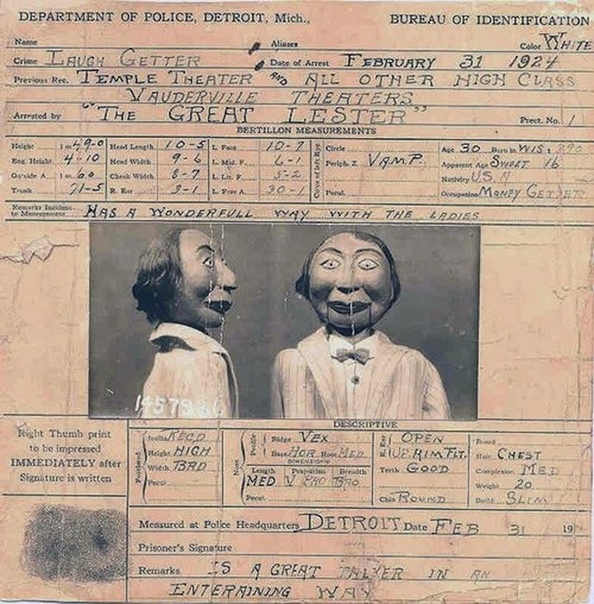 DEPARTMENT OF POLICE, DETROIT, Mich., BUREAU OF IDENTIFICATION
Name Aliases Color WHITE
Crime LAUGH GETTER Date of Arrest FEBRUARY 31 1924
Previous Rec. TEMPLE THEATER AND ALL OTHER HIGH CLASS
VAUDERVILLE THEATERS
Arrested by "THE GREAT LESTER" Prect. No. 1
BERTILLON MEASUREMENTS
Height 1 m 49-0 Head Length 10-5 L. Foot 10-7 Circle Age 30 Born in WIS.
Eng. Height 4-10 Head Width 9-6 L. Mid. F. 6-1 Periph. Z VAMP. Apparent Age SWEET 16
Outside A. 1 m 60 Cheek Width 8-7 L. Lit. F. 5-2 Nativity U.S.A
Trunk 71-5 R. Ear 3-1 L. Fore A. 30-1 Pecul. Occupation MONEY GETTER
Color of left Eye
Remarks Incident to Measurement HAS A WONDERFULL WAY WITH THE LADIES
1457986
DESCRIPTIVE
Right Thumb print
to be impressed
IMMEDIATELY after
Signature is written
Forehead
Inclin. RECD
Height HIGH
Width BRD
Pecul.
Nose
Profile
Ridge VEX
Base HOR Root MED
DIMENSION
Length Projection Breadth
MED
Pecul.
R. Ear
OPEN
UP. RIM FLT.
Teeth GOOD
Chin ROUND
Beard
Hair CHEST
Complexion MED
Weight 20
Build SLIM
Measured at Police Headquarters DETROIT Date FEB 31 19
Prisoner's Signature
Remarks IS A GREAT TALKER IN AN
ENTERAINING WAY